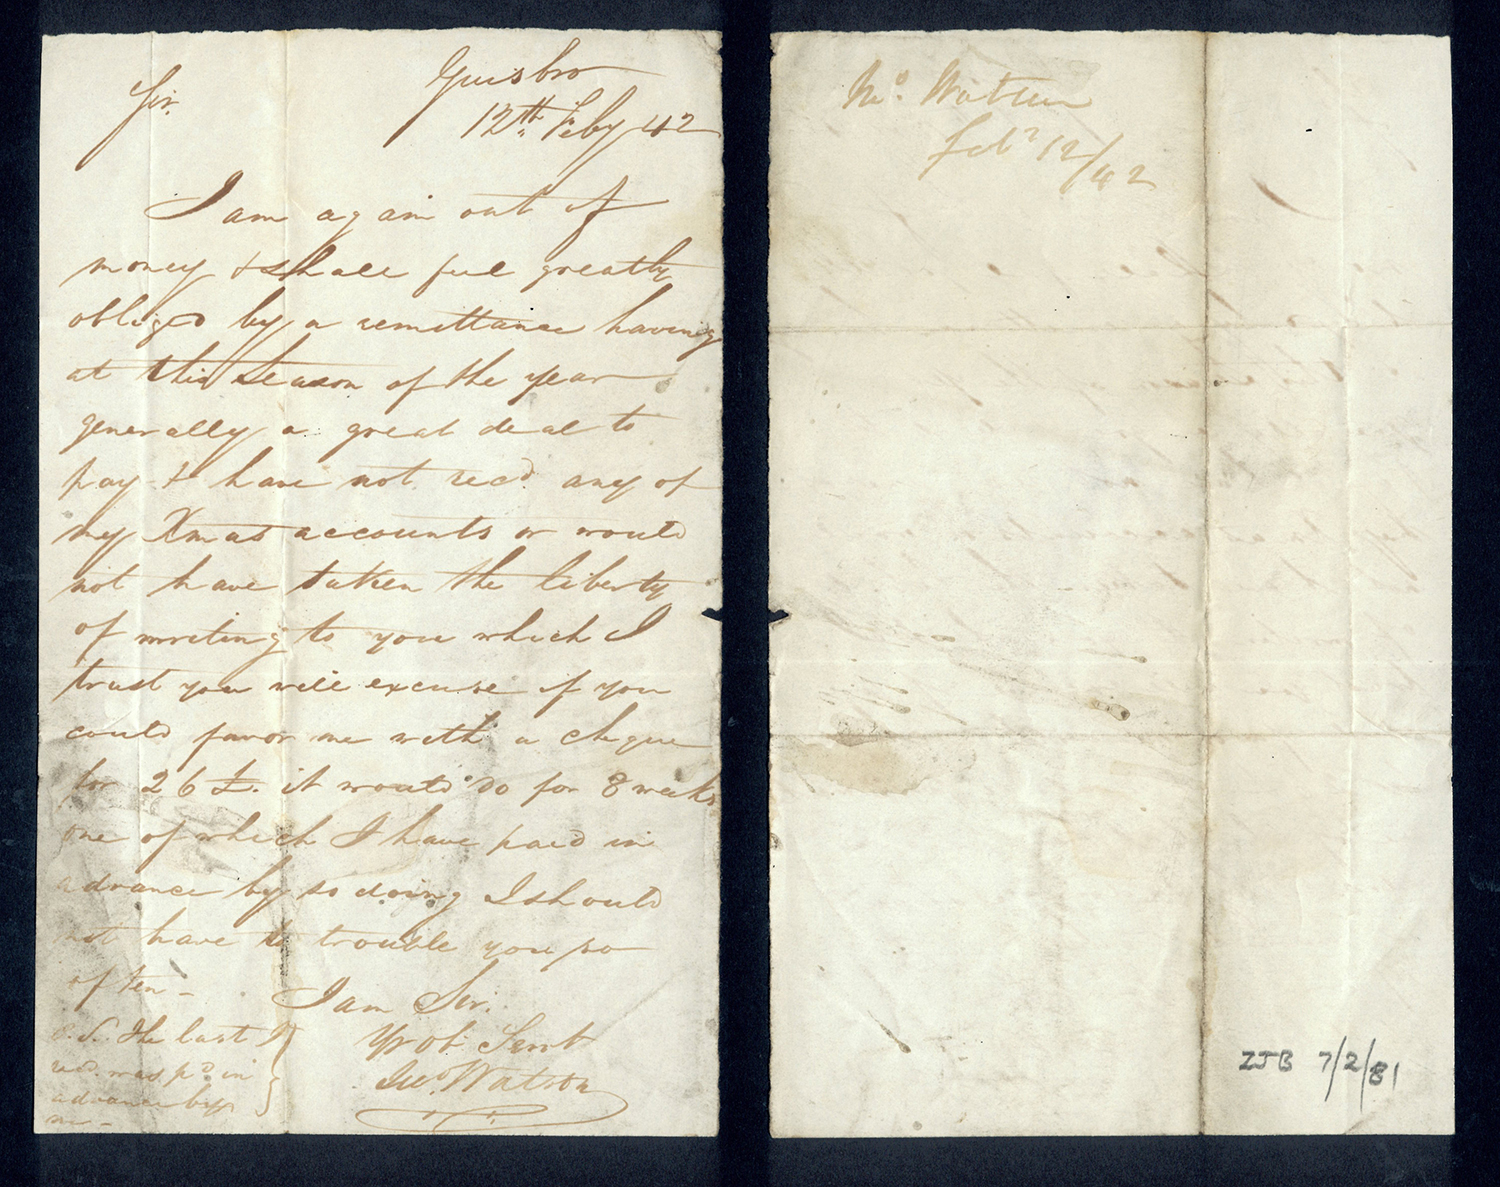 Guisbro
Sir. 12th Feby 42
I am again out of
money & shall feel greatly
obliged by a remittance having
at this season of the year
generally a great deal to
pay & have not recd. any of
my Xmas accounts or would
not have taken the liberty
of writing to you which I
trust you will excuse if you
could favor me with a cheque
for 26£. it would do for 8 weeks
one of which I have paid in
advance by so doing I should
not have to trouble you so
often -
I am Sir.
Yr ob Servt
Jno. Watson
P.S. the last I
recd. was pd. in
advance by
me -
Watson
Feby 12/42
ZJB 7/2/81